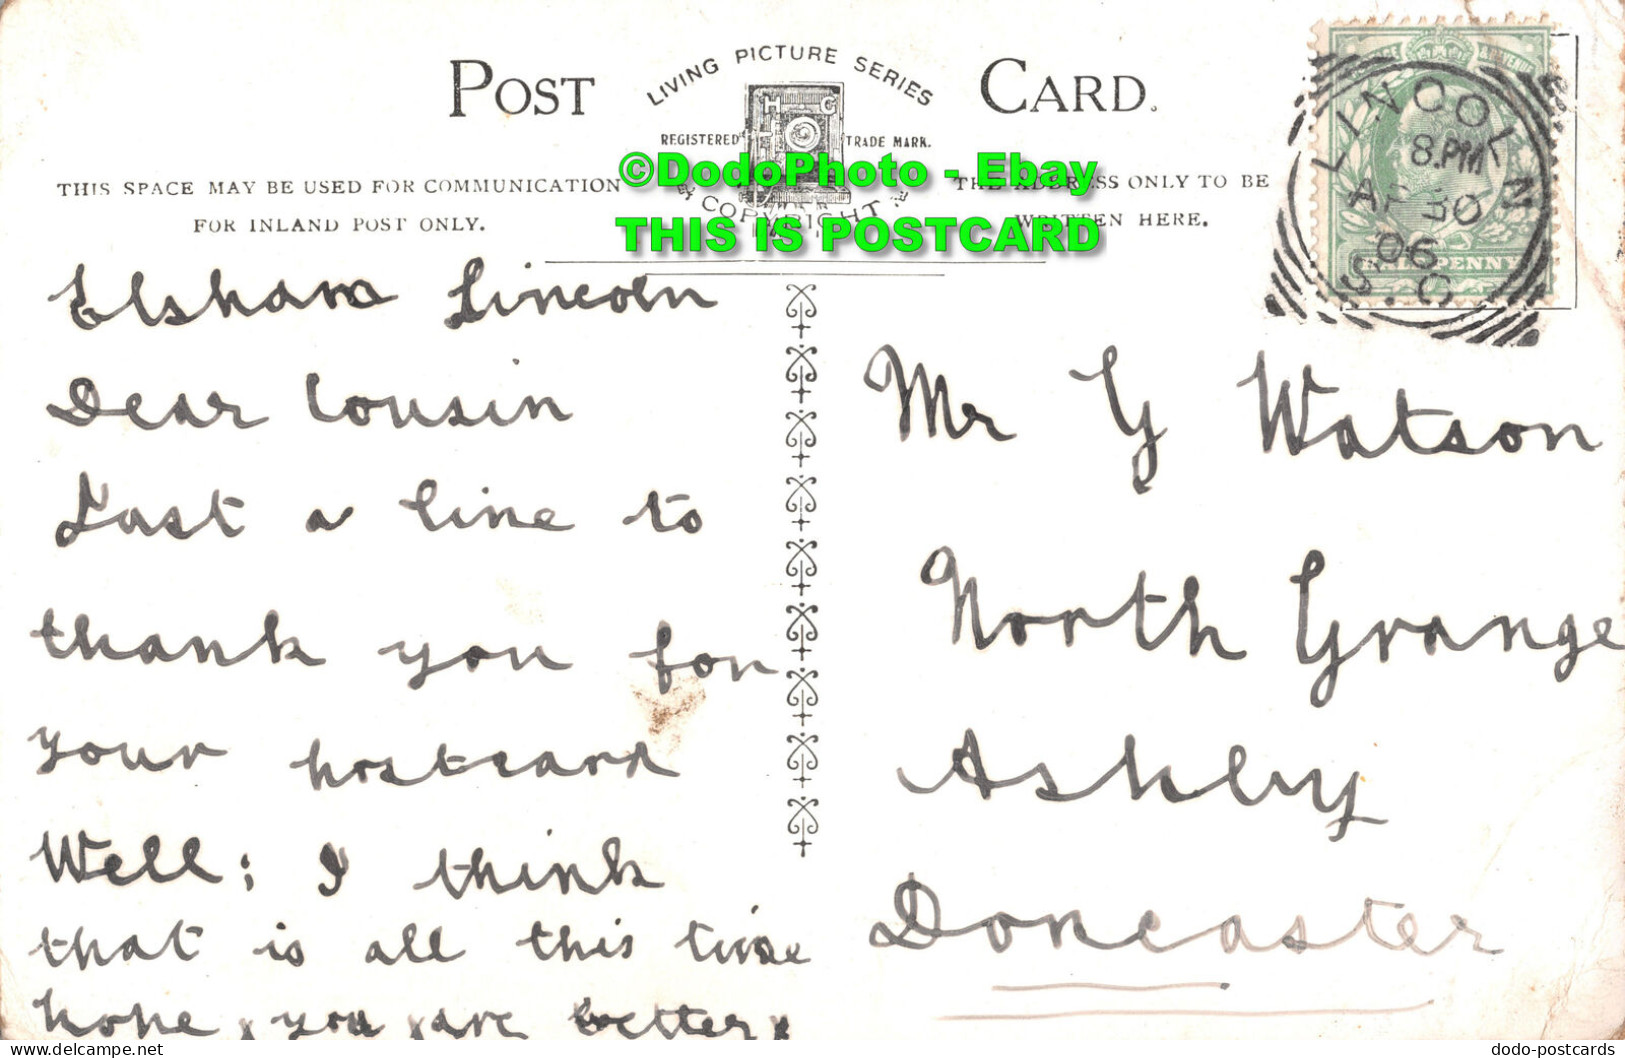 POST CARD.
LIVING PICTURE SERIES
H G
REGISTERED TRADE MARK.
COPYRIGHT
THIS SPACE MAY BE USED FOR COMMUNICATION
FOR INLAND POST ONLY.
THE ADDRESS ONLY TO BE
WRITTEN HERE.
©DodoPhoto - Ebay
THIS IS POSTCARD
LINCOLN
8.PM
AP 30
06
S.O
HALFPENNY
Elsham Lincoln
Dear Cousin
Just a line to
thank you for
your postcard
Well; I think
that is all this time
hope you are better
Mr G Watson
North Grange
Ashby
Doncaster
dodo-postcards